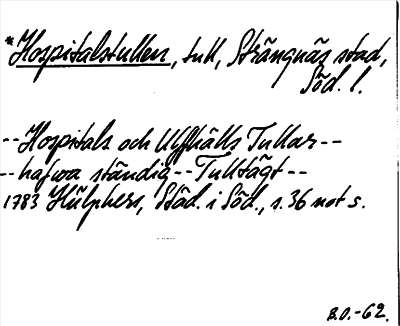 *Hospitalstullen, tull, Strängnäs stad,
Söd. l.
--Hospitals och Ulfhälls Tullar--
--hafwa ständig--Tulltägt--
1783 Hülphers, Städ. i Söd., s. 36 not s.
B.O.-62.